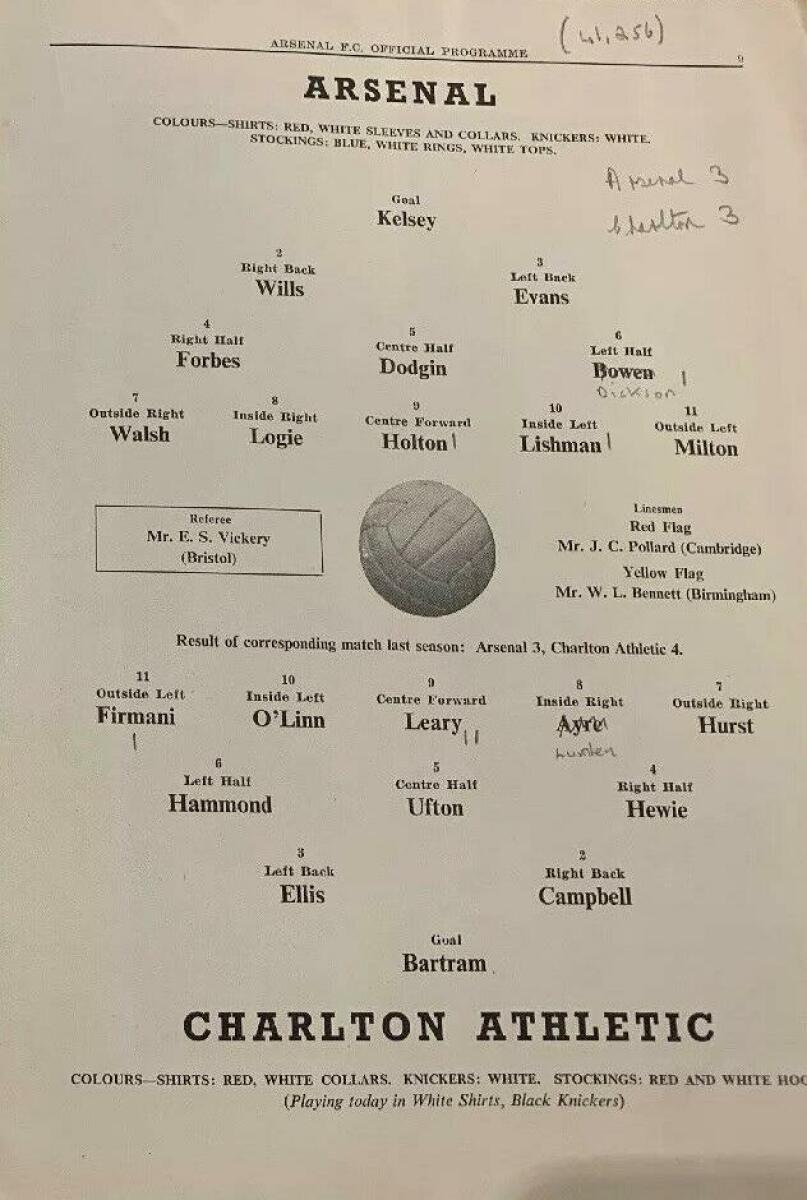 (41,256)
ARSENAL F.C. OFFICIAL PROGRAMME 9
ARSENAL
COLOURS—SHIRTS: RED, WHITE SLEEVES AND COLLARS. KNICKERS: WHITE.
STOCKINGS: BLUE, WHITE RINGS, WHITE TOPS.
Arsenal 3
Charlton 3
Goal
Kelsey
2
Right Back
Wills
3
Left Back
Evans
4
Right Half
Forbes
5
Centre Half
Dodgin
6
Left Half
Bowen |
Dickson
7
Outside Right
Walsh
8
Inside Right
Logie
9
Centre Forward
Holton |
10
Inside Left
Lishman |
11
Outside Left
Milton
Referee
Mr. E. S. Vickery
(Bristol)
Linesmen
Red Flag
Mr. J. C. Pollard (Cambridge)
Yellow Flag
Mr. W. L. Bennett (Birmingham)
Result of corresponding match last season: Arsenal 3, Charlton Athletic 4.
11
Outside Left
Firmani
|
10
Inside Left
O'Linn
9
Centre Forward
Leary ||
8
Inside Right
Ayre
7
Outside Right
Hurst
6
Left Half
Hammond
5
Centre Half
Ufton
4
Right Half
Hewie
3
Left Back
Ellis
2
Right Back
Campbell
Goal
Bartram
CHARLTON ATHLETIC
COLOURS—SHIRTS: RED, WHITE COLLARS. KNICKERS: WHITE. STOCKINGS: RED AND WHITE HOO
(Playing today in White Shirts, Black Knickers)